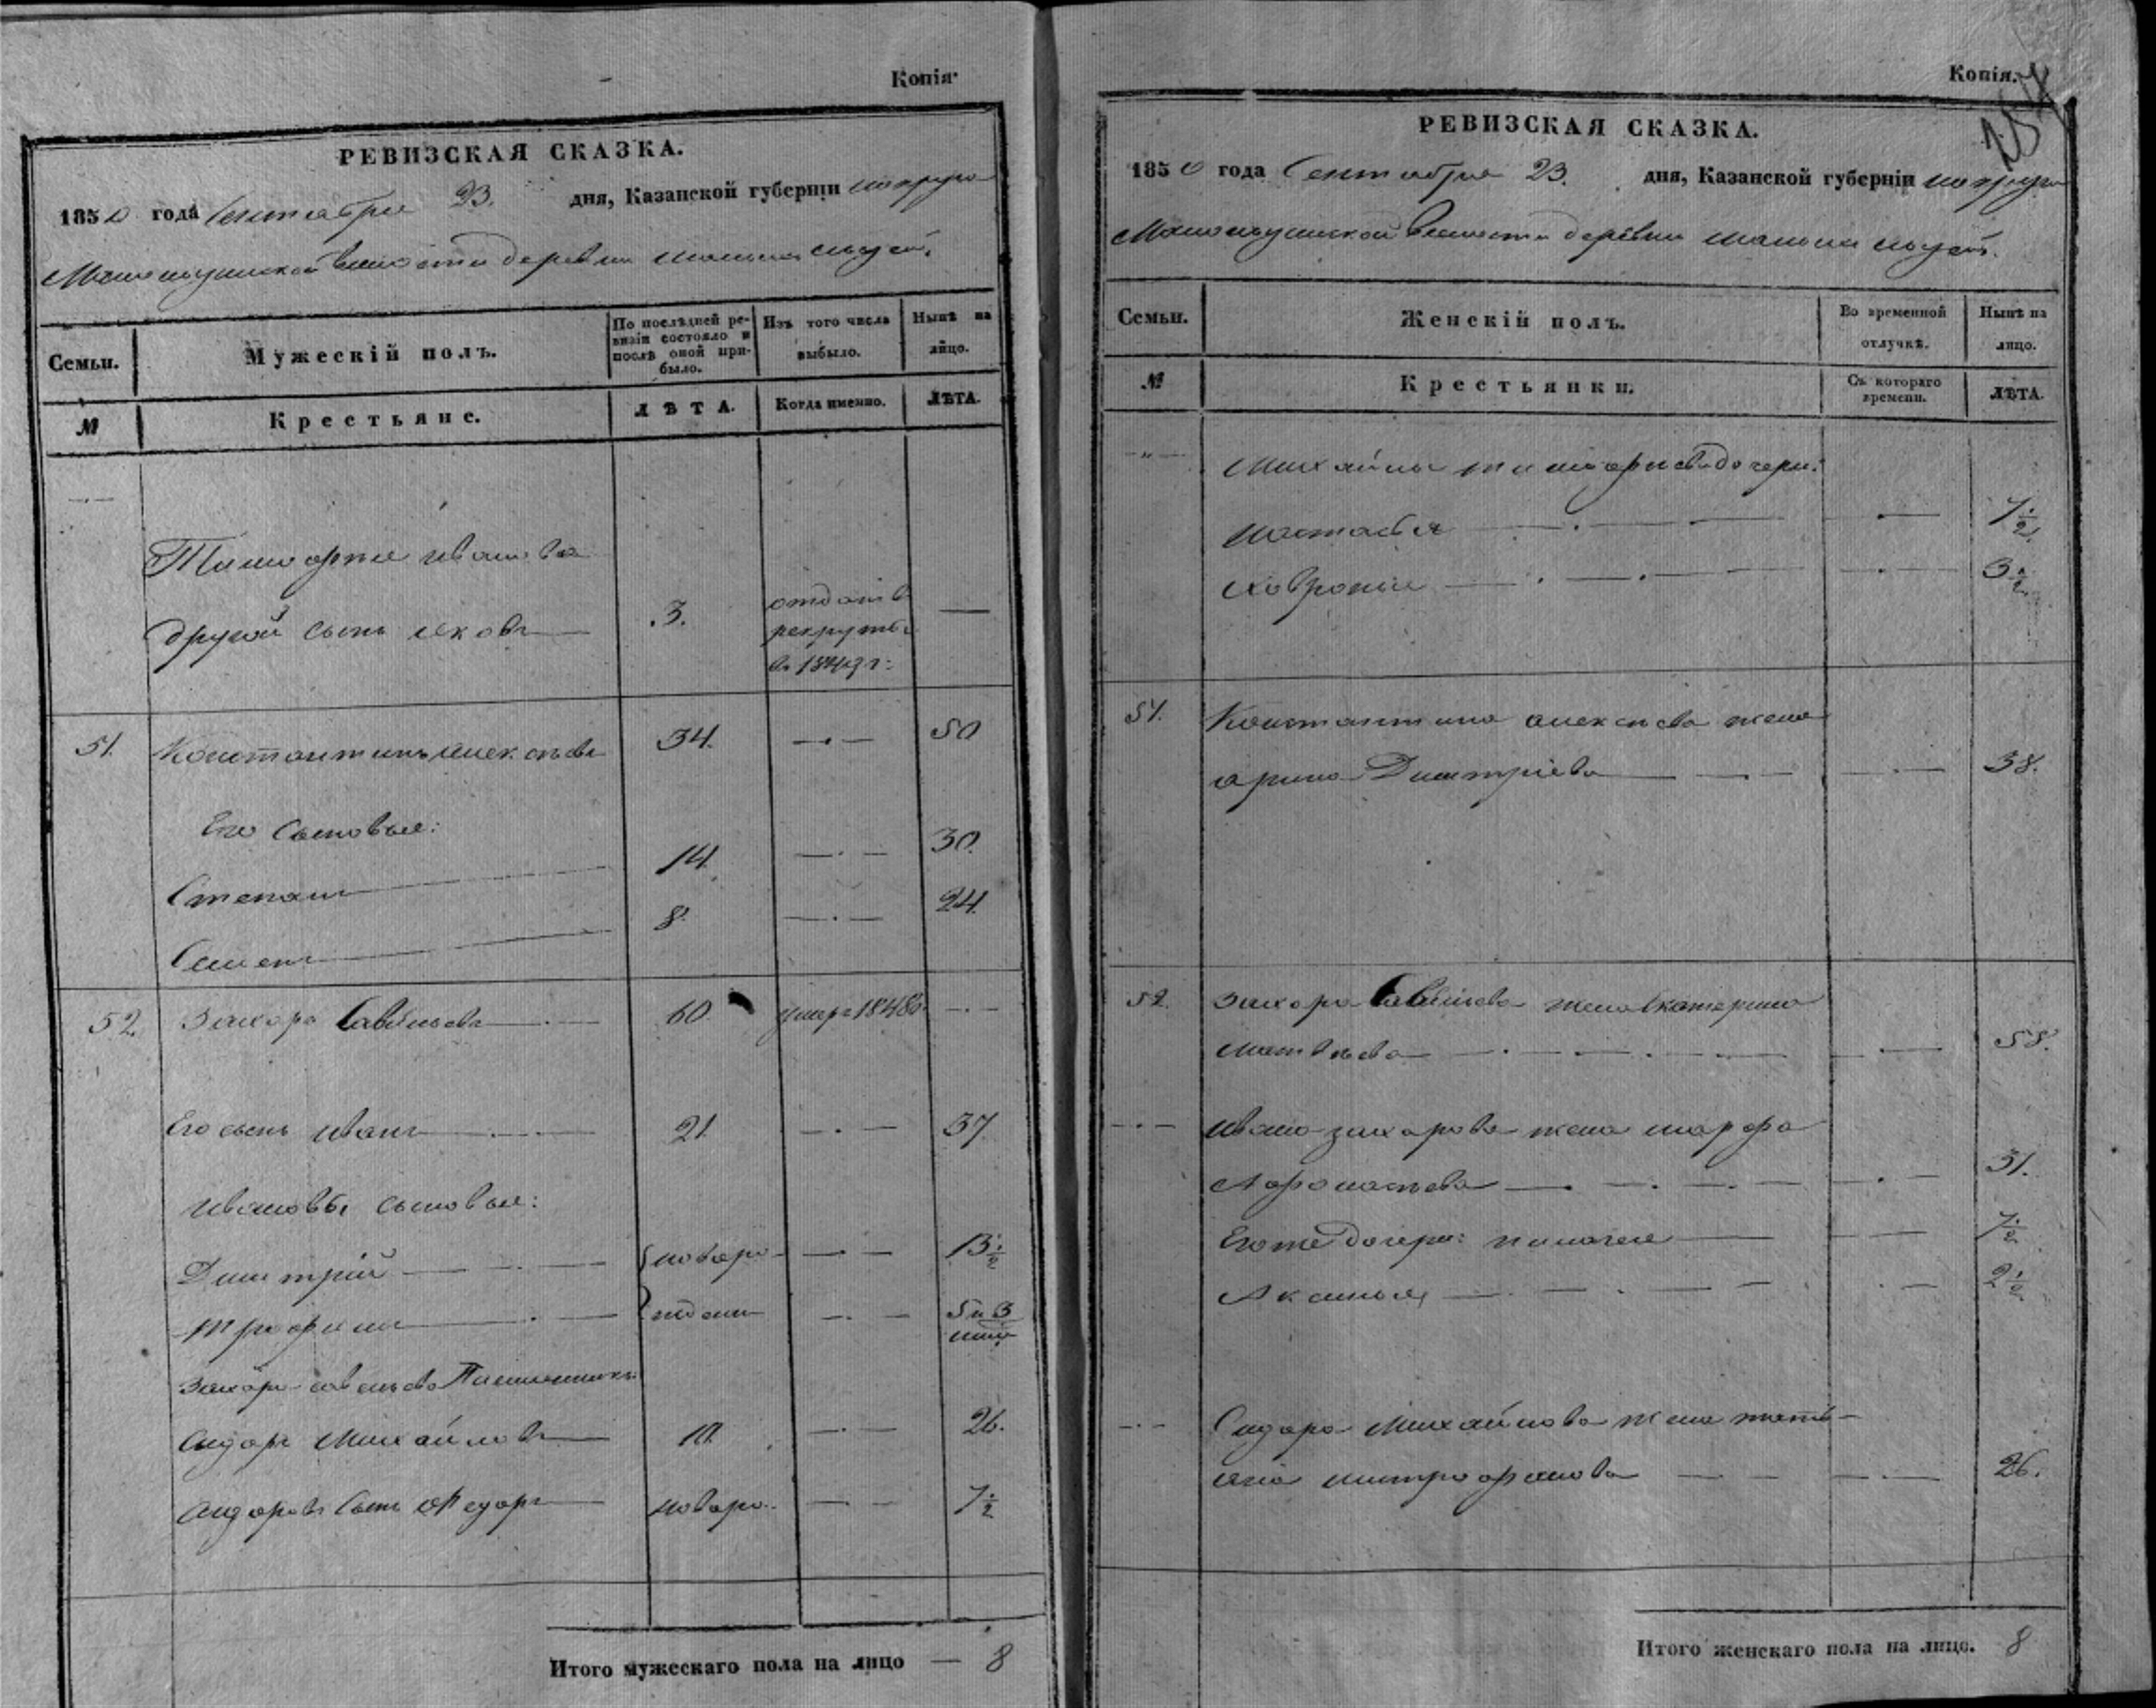 Копія
РЕВИЗСКАЯ СКАЗКА.
1850 года Сентября 23. дня, Казанской губерніи
волости деревни
Семьи.
Мужескій полъ.
По послѣдней ревизіи состояло и послѣ оной прибыло.
Изъ того числа выбыло.
Нынѣ на лицо.
№
Крестьяне.
ЛѢТА.
Когда именно.
ЛѢТА.
Иванова
другой сынъ Яковъ 3. отданъ въ —
рекруты
въ 1849 г:
51. Константинъ Алексѣевъ 34. 50
Его сыновья:
Степанъ 14. 30.
Семенъ 8. 24.
52. Захаръ Савельевъ 60 умеръ 1848
Его сынъ Иванъ 21. 37
Ивановы сыновья:
Дмитрій новоро- 13 1/2
Трофимъ ждены 5 и 3
Захара Савельева Племянникъ
Сидоръ Михайловъ 10. 26.
Сидоровъ сынъ Федоръ новоро. 7 1/2
Итого мужескаго пола на лицо — 8
Копія.
РЕВИЗСКАЯ СКАЗКА.
1850 года Сентября 23. дня, Казанской губерніи
волости деревни
Семьи.
Женскій полъ.
Во временной отлучкѣ.
Нынѣ на лицо.
№
Крестьянки.
Съ котораго времени.
ЛѢТА.
Михайлы дочери:
Настасья 7 1/2
Ховронья 3 1/2
51. Константина Алексѣева жена
Арина Дмитріева 38.
52. Захара Савельева жена Катерина
Матвѣева 58.
Ивана Захарова жена Марфа
31.
Егоже дочери: Пелагея 7 1/2
Акулина 2 1/2
Сидора Михайлова жена Тать-
яна Митрофанова 26.
Итого женскаго пола на лицо. 8